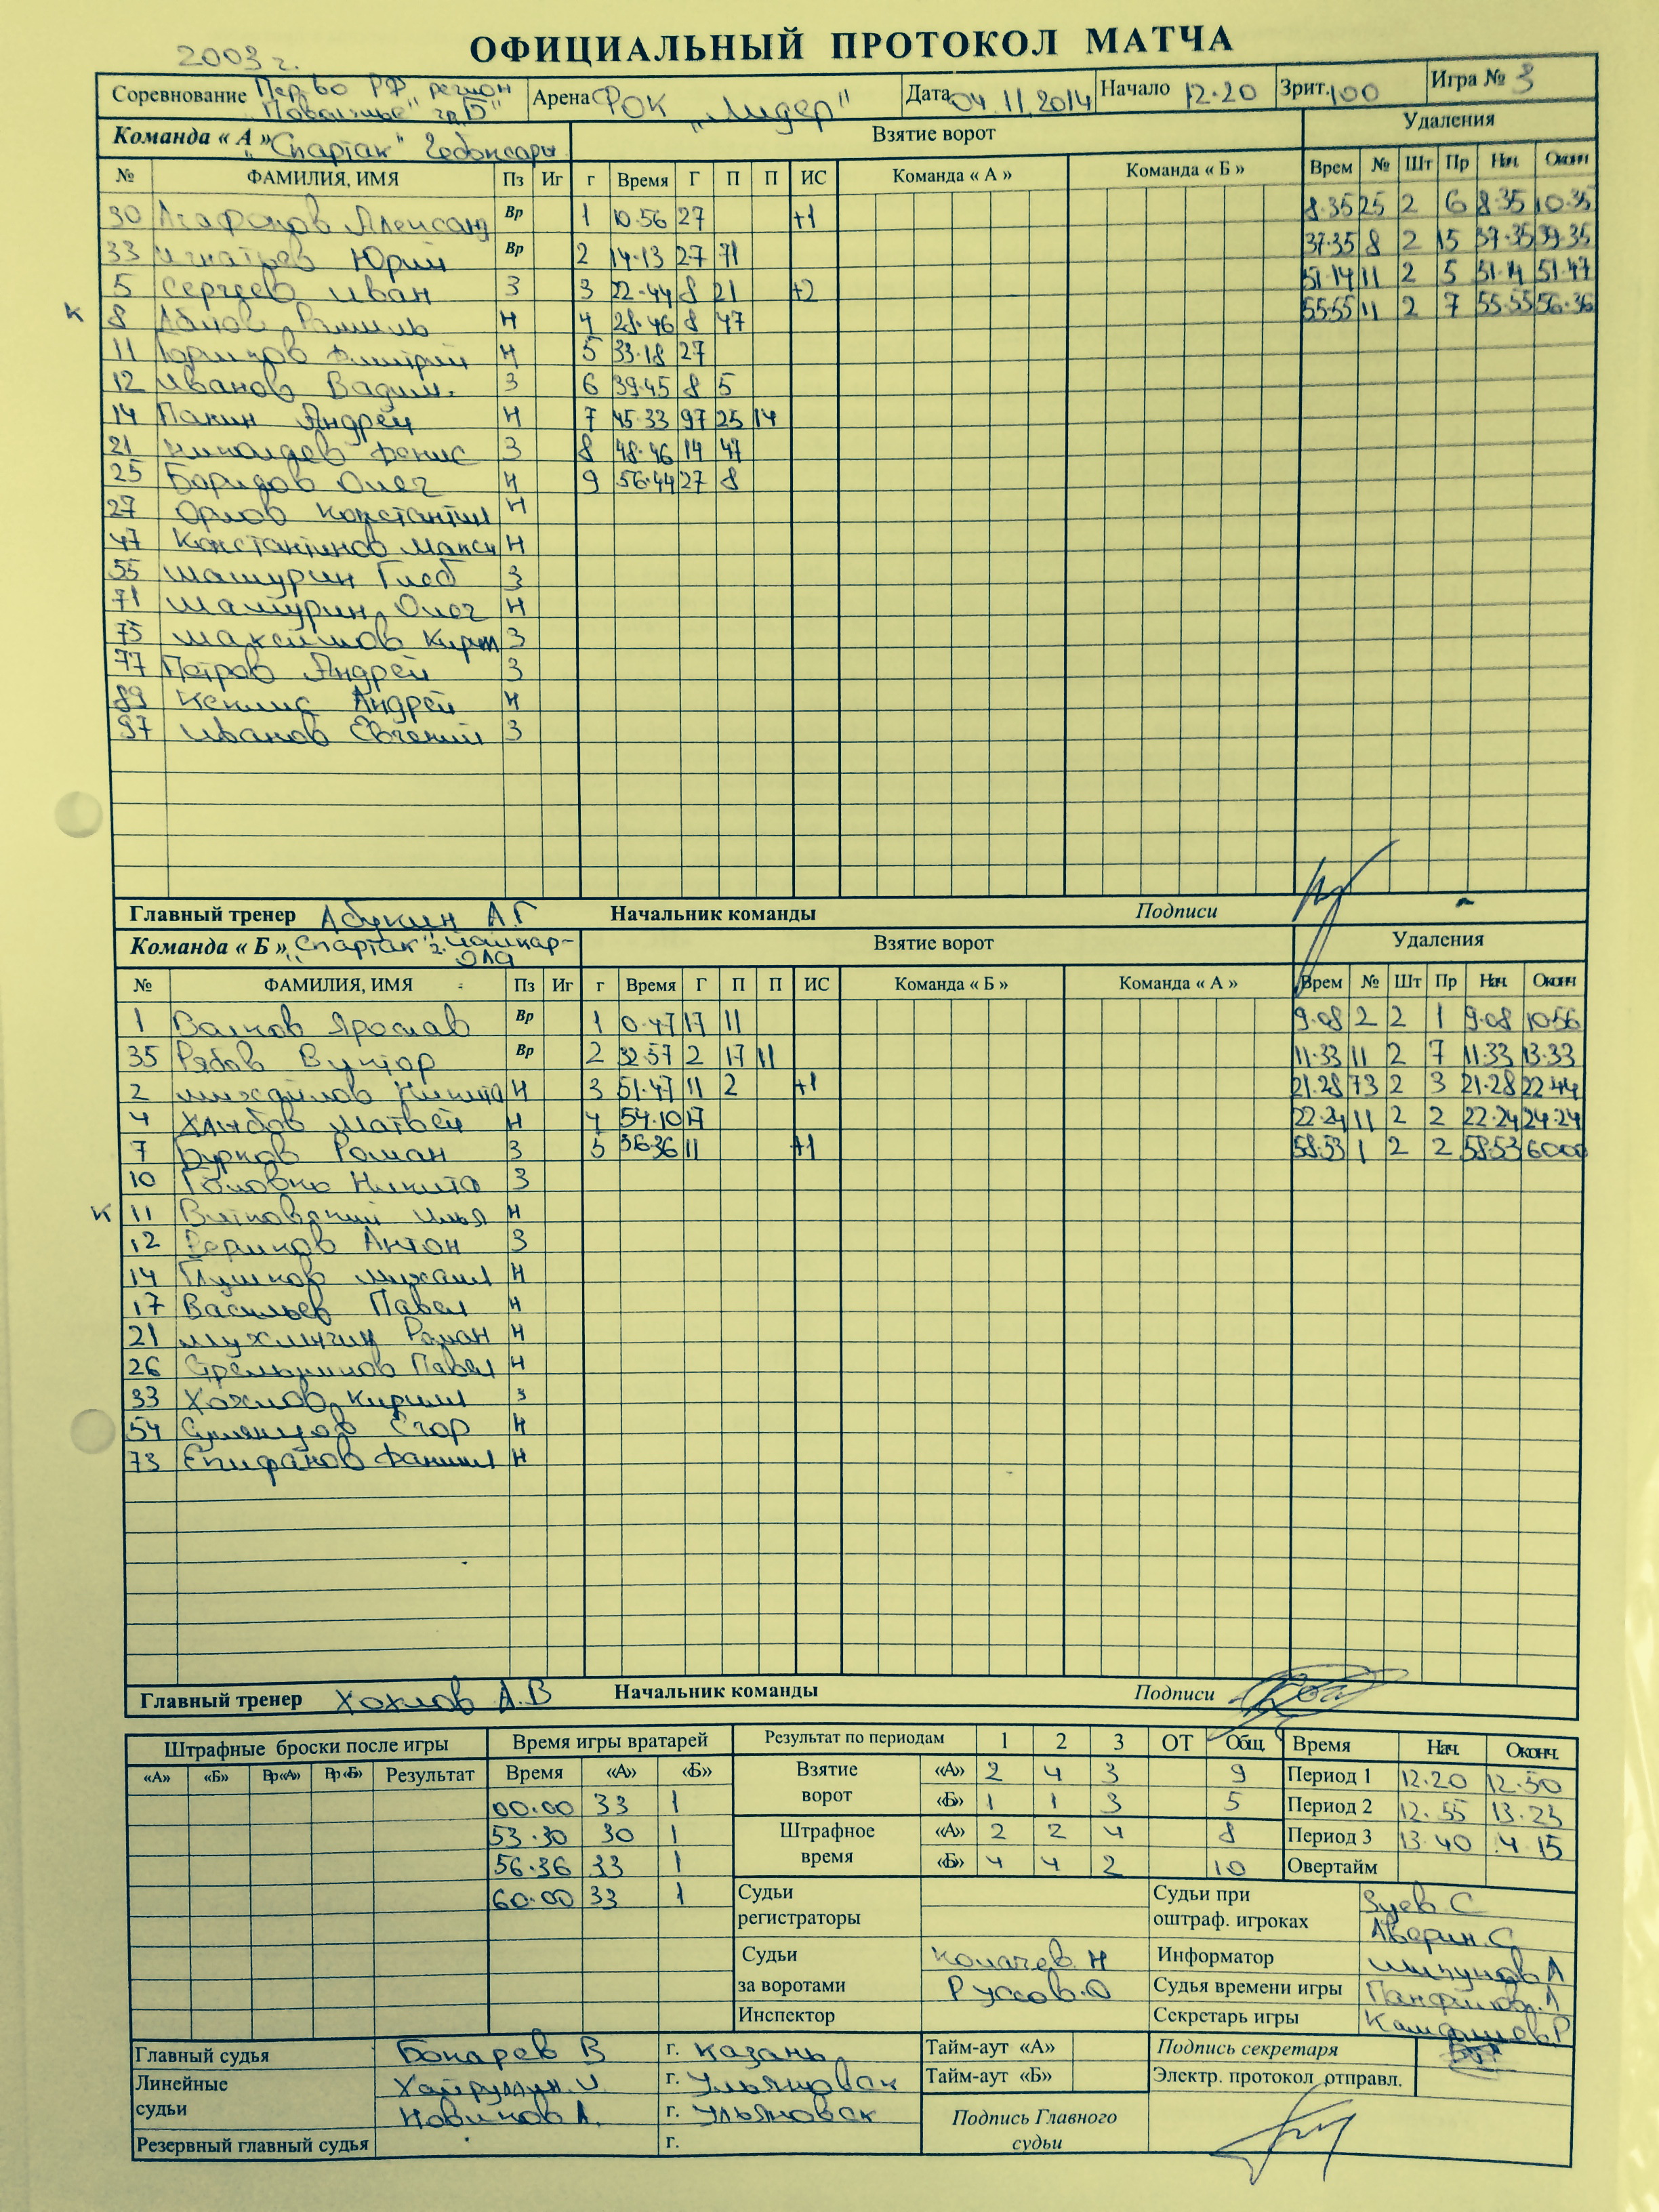 2003 г.
ОФИЦИАЛЬНЫЙ ПРОТОКОЛ МАТЧА
Соревнование Пер-во РФ регион "Поволжье" гр."Б" Арена ФОК "Лидер" Дата 04.11.2014 Начало 12.20 Зрит. 100 Игра № 3
Команда « А » "Спартак" Чебоксары Взятие ворот Удаления
№ ФАМИЛИЯ, ИМЯ Пз Иг г Время Г П П ИС Команда « А » Команда « Б » Врем № Шт Пр Нач. Оконч
30 Агафонов Александ Вр 1 10.56 27 +1 8.35 25 2 6 8.35 10.35
33 Игнатьев Юрий Вр 2 14.13 27 71 37.35 8 2 15 37.35 39.35
5 Сергеев Иван З 3 22.44 8 21 +2 51.14 11 2 5 51.14 51.47
к 8 Рамиль Н 4 28.46 8 47 55.55 11 2 7 55.55 56.36
11 Дмитрий Н 5 33.18 27
12 Иванов Вадим. З 6 39.45 8 5
14 Пакин Андрей Н 7 45.33 97 25 14
21 Николаев Денис З 8 48.46 14 47
25 Олег Н 9 56.44 27 8
27 Орлов Константин Н
47 Константинов Макси Н
55 Машурин Глеб З
71 Машурин Олег Н
75 Максимов Кирил З
77 Петров Андрей З
89 Андрей Н
97 Иванов Евгений З
Главный тренер Абукин А.Г Начальник команды Подписи
Команда « Б » "Спартак" г. Йошкар-Ола Взятие ворот Удаления
№ ФАМИЛИЯ, ИМЯ Пз Иг г Время Г П П ИС Команда « Б » Команда « А » Врем № Шт Пр Нач. Оконч
1 Волков Ярослав Вр 1 0.47 17 11 9.08 2 2 1 9.08 10.56
35 Рябов Виктор Вр 2 32.57 2 17 11 11.33 11 2 7 11.33 13.33
2 Михайлов Никита Н 3 51.47 11 2 +1 21.28 73 2 3 21.28 22.44
4 Хлыбов Матвей Н 4 54.10 17 22.24 11 2 2 22.24 24.24
7 Бурков Роман З 5 56.36 11 +1 58.53 1 2 2 58.53 60.00
10 Головко Никита З
к 11 Витковский Илья Н
12 Антон З
14 Глушков Михаил Н
17 Васильев Павел Н
21 Роман Н
26 Стрельников Павел Н
33 Хохлов Кирилл З
54 Егор Н
73 Епифанов Даниил Н
Главный тренер Хохлов А.В Начальник команды Подписи
Штрафные броски после игры Время игры вратарей Результат по периодам 1 2 3 ОТ Общ. Время Нач. Оконч.
«А» «Б» Вр«А» Вр«Б» Результат Время «А» «Б» Взятие ворот «А» 2 4 3 9 Период 1 12.20 12.50
00.00 33 1 «Б» 1 1 3 5 Период 2 12.55 13.25
53.30 30 1 Штрафное время «А» 2 2 4 8 Период 3 13.40 14.15
56.36 33 1 «Б» 4 4 2 10 Овертайм
60.00 33 1 Судьи регистраторы Судьи при оштраф. игроках Зуев С
Аверин.С
Судьи за воротами Колачев Н Информатор
Руссов.О Судья времени игры Панфилов.А
Инспектор Секретарь игры
Главный судья Бокарев В г. Казань Тайм-аут «А» Подпись секретаря
Линейные судьи Хайруллин.И. г. Ульяновск Тайм-аут «Б» Электр. протокол отправл.
Новиков А. г. Ульяновск Подпись Главного судьи
Резервный главный судья г.